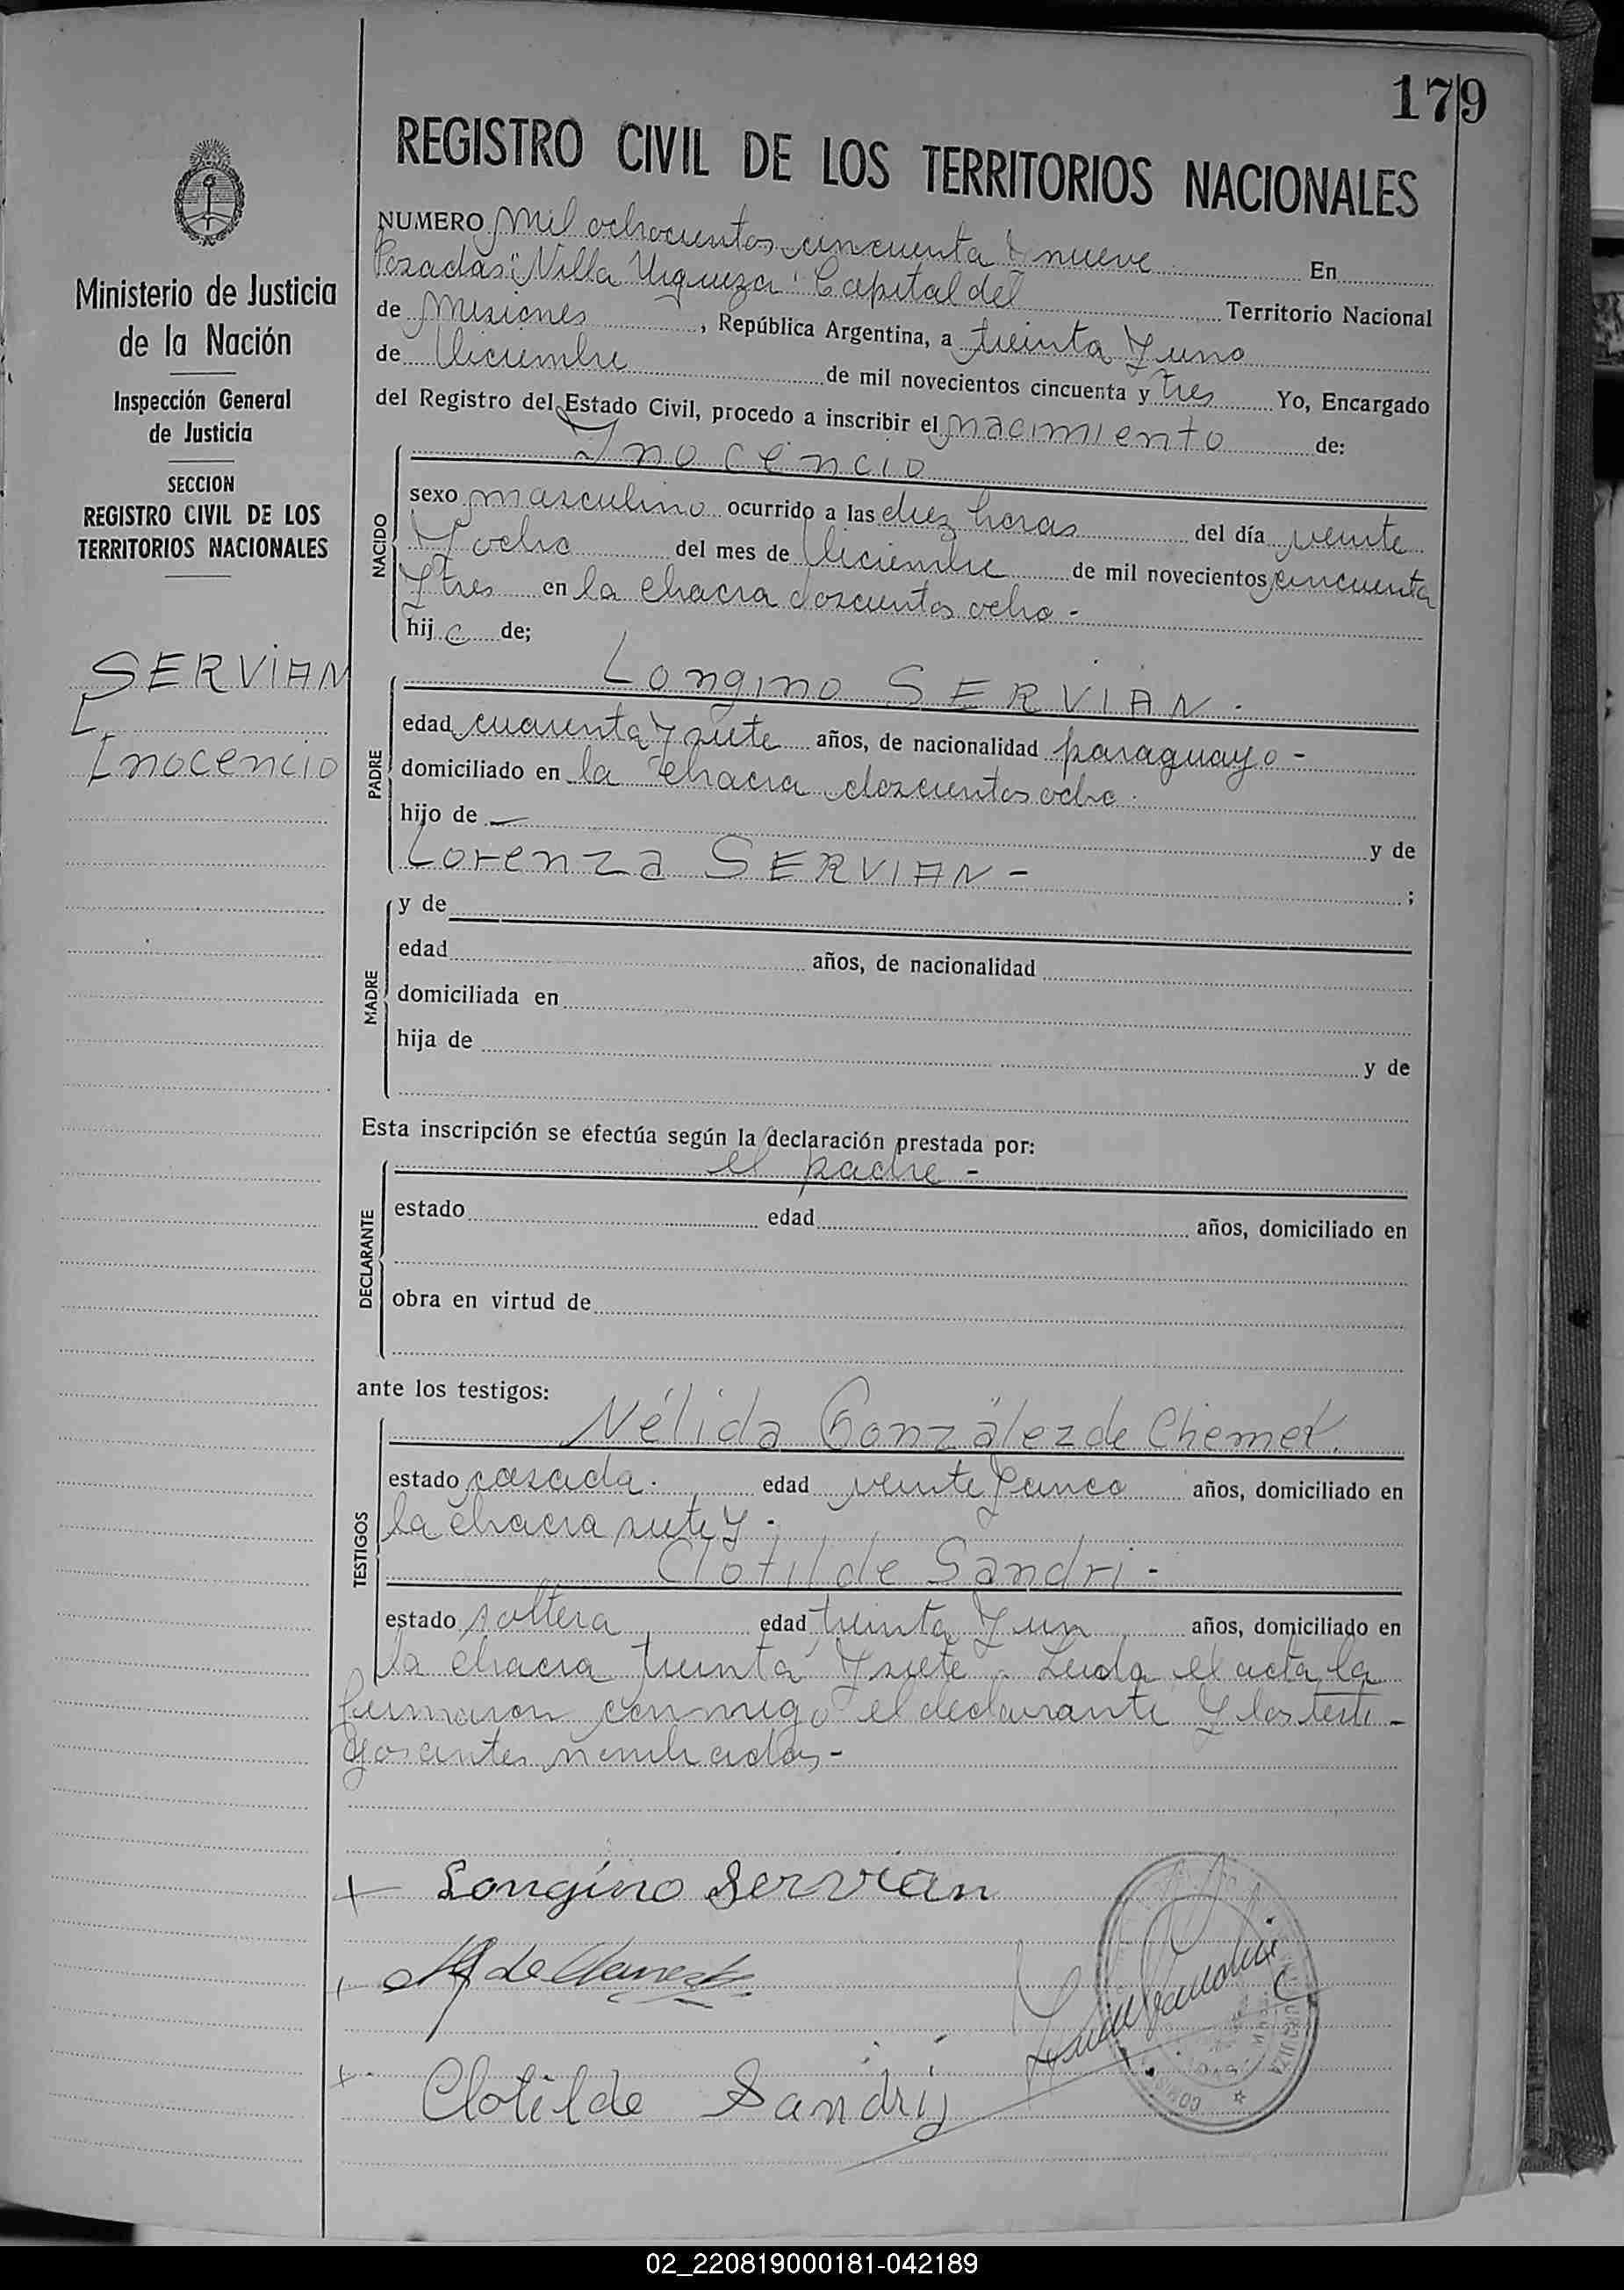 179
REGISTRO CIVIL DE LOS TERRITORIOS NACIONALES
Ministerio de Justicia
de la Nación
Inspección General
de Justicia
SECCION
REGISTRO CIVIL DE LOS
TERRITORIOS NACIONALES
SERVIAN
Inocencio
NUMERO mil ochocientos cincuenta y nueve En
Posadas "Villa Urquiza" Capital del Territorio Nacional
de Misiones, República Argentina, a treinta y uno
de diciembre de mil novecientos cincuenta y tres Yo, Encargado
del Registro del Estado Civil, procedo a inscribir el nacimiento de:
NACIDO
Inocencio
sexo masculino ocurrido a las diez horas del día veinte
y ocho del mes de diciembre de mil novecientos cincuenta
y tres en la chacra doscientos ocho -
hijo de;
PADRE
Longino SERVIAN.
edad cuarenta y siete años, de nacionalidad paraguayo -
domiciliado en la chacra doscientos ocho.
hijo de — y de
Lorenza SERVIAN - ;
MADRE
y de
edad años, de nacionalidad
domiciliada en
hija de y de
Esta inscripción se efectúa según la declaración prestada por:
DECLARANTE
el padre -
estado edad años, domiciliado en
obra en virtud de
ante los testigos:
TESTIGOS
Nélida González de
estado casada. edad veinte y cinco años, domiciliado en
la chacra siete y.
Clotilde Sandri -
estado soltera edad treinta y un años, domiciliado en
la chacra treinta y siete - Leida el acta la
firmaron conmigo el declarante y los testi-
gos antes nombrados,-
+ Longino Servian
+
+ Clotilde Sandrij
02_220819000181-042189